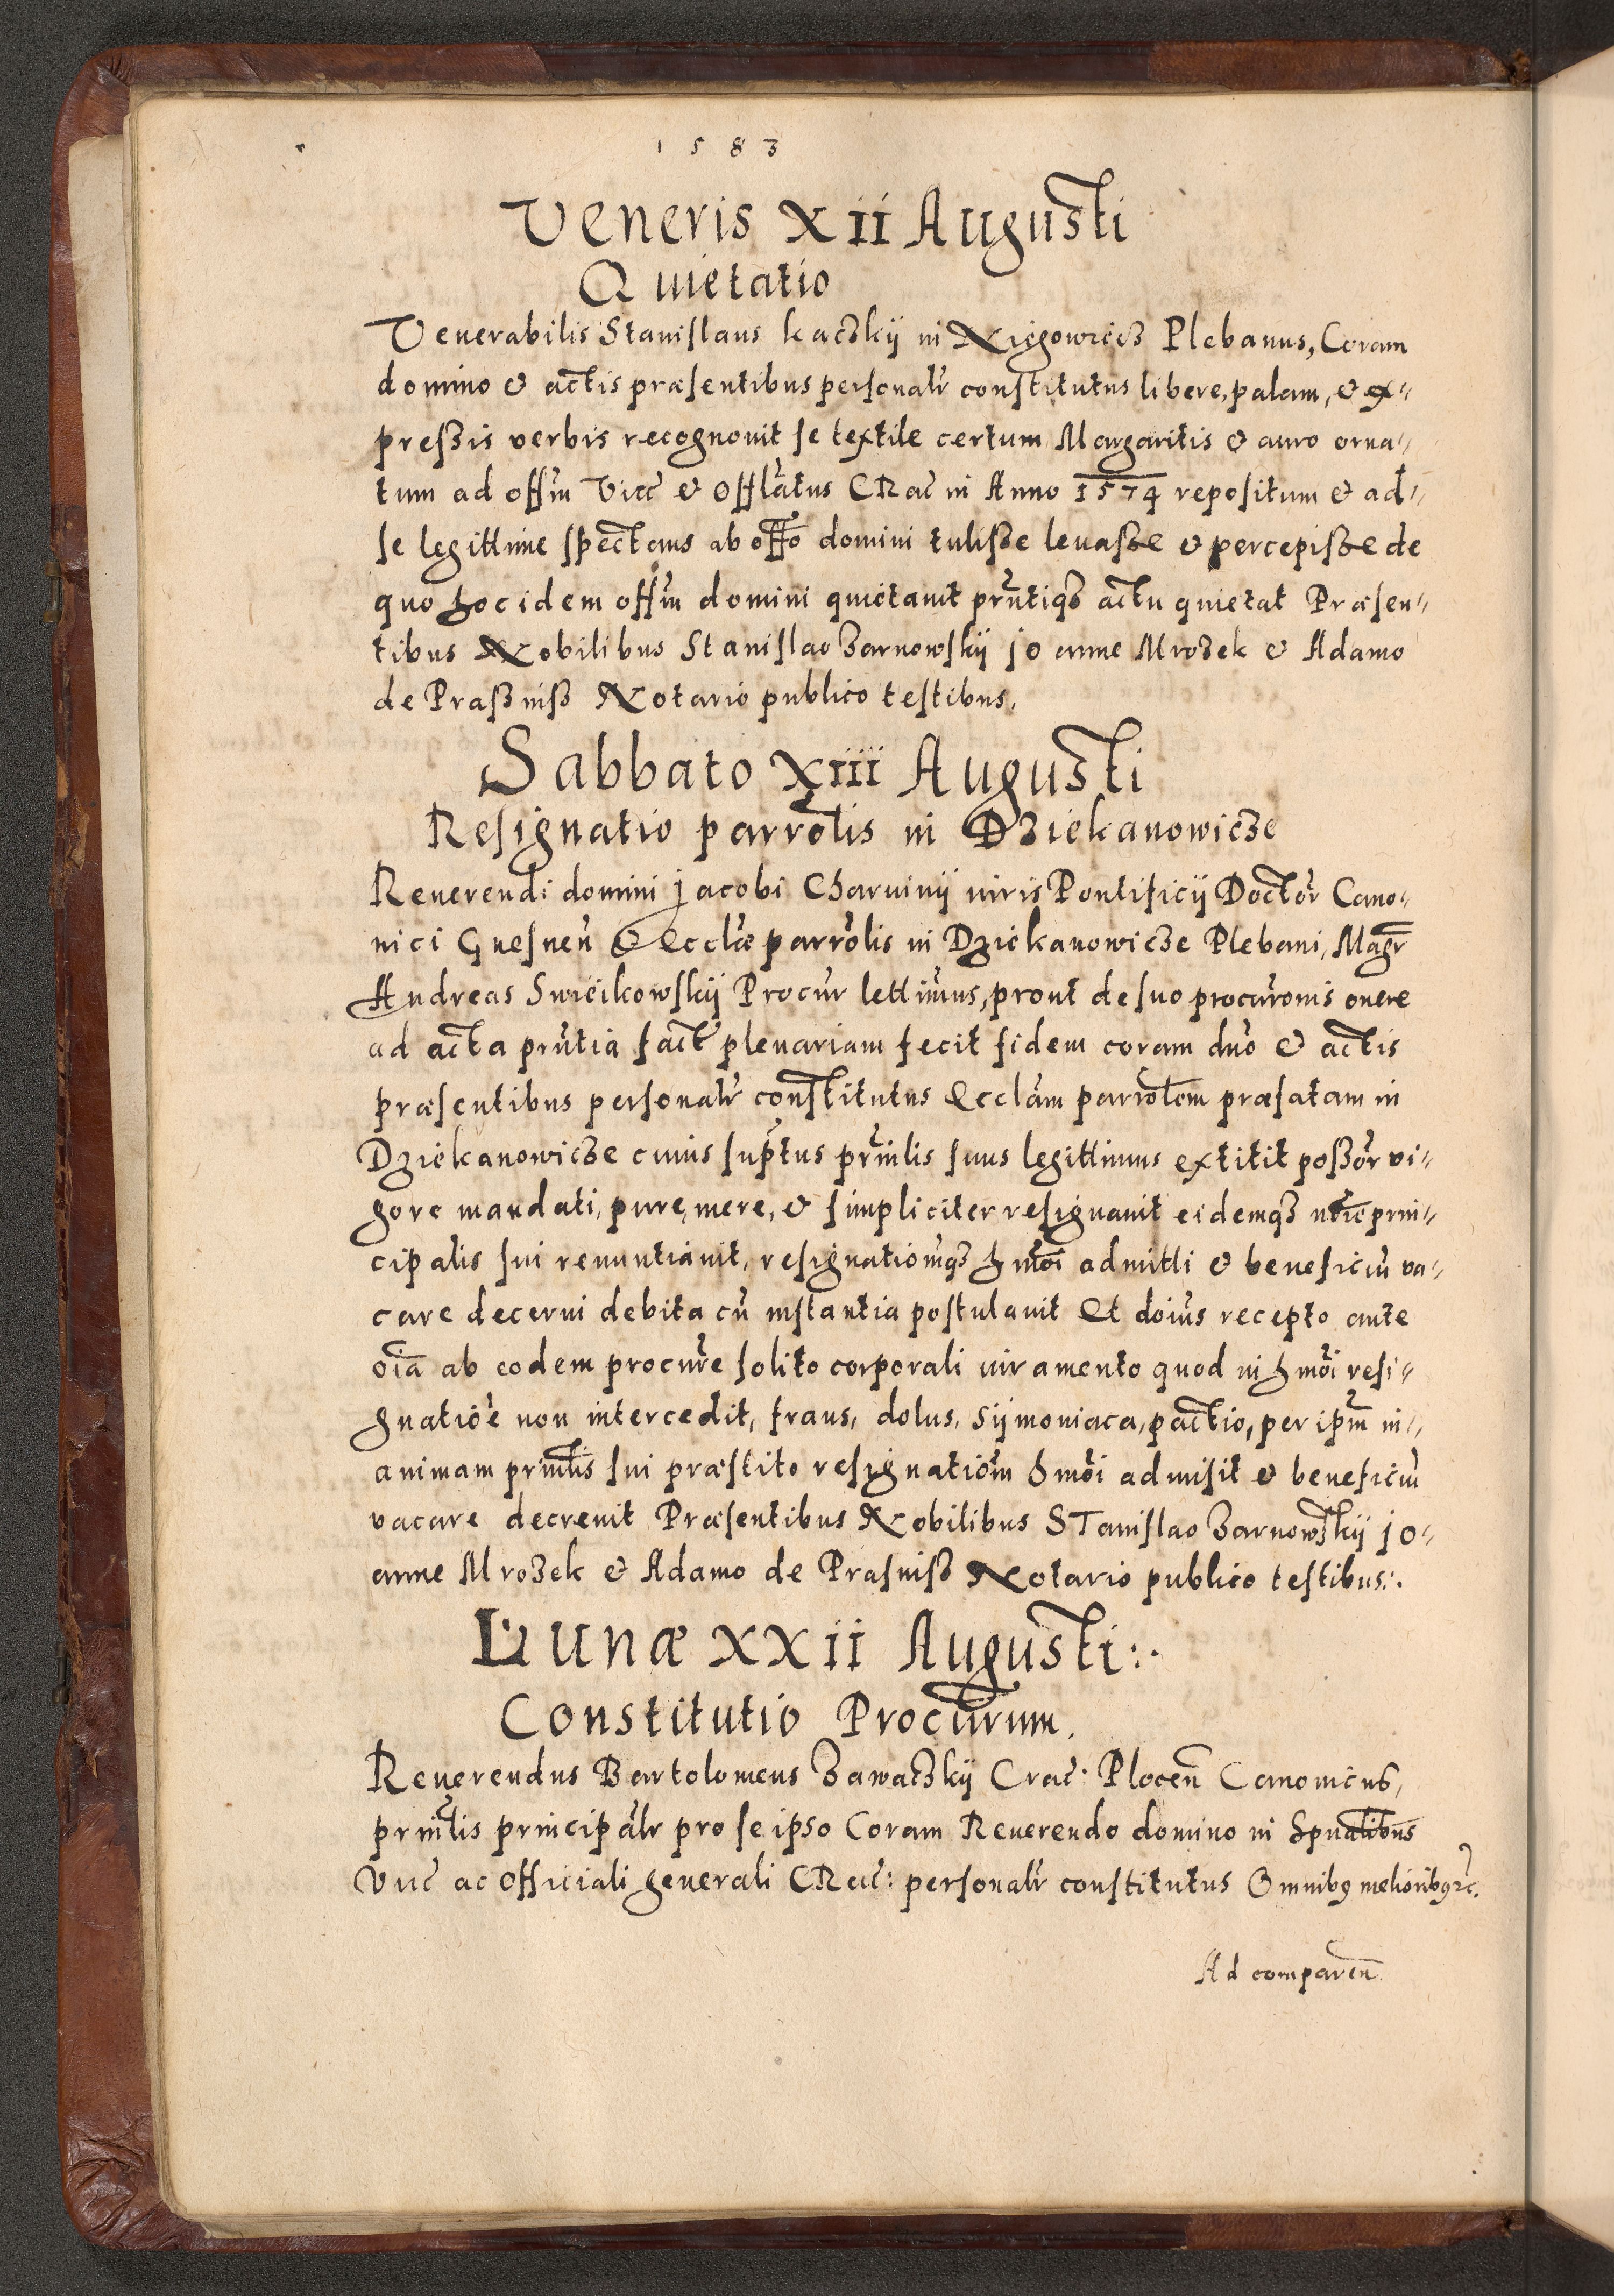 1583
Veneris XII Augusti
Quietatio
Venerabilis Stanislaus kaczkÿ in Niegowicz Plebanus, Coram
domino & actis præsentibus personalr constitutus libere, palam, & ex„
preßis verbis recognouit se textile certum Margaritis & auro orna„
tum ad offm Vicć & Offlatus CRać in Anno 1574 repositum & ad„
se legittime spectans ab offo domini tulisse leuasse & percepisse de
quo hoc idem offm domini quietauit prntiqȝ actu quietat Præsen„
tibus Nobilibus Stanislao Żarnowskÿ joanne Mrozek & Adamo
de Praßniß Notario publico testibus.
Sabbato XIII Augusti
Resignatio parrolis in Dziekanowicze
Reuerendi domini jacobi Charvinÿ iuris Pontificÿ Doctor Cano„
nici Gnesnen̄ & Ecclæ parrolis in Dziekanowicze Plebani, Magr
Andreas Swieikowskÿ Procur lettimus, prout de suo procuronis onere
ad acta prntia fact plenariam fecit fidem coram dno & actis
præsentibus personalr constitutus Ecclam parrolem præfatam in
Dziekanowicze cuius suptus prinlis suus legittimus extitit possor vi„
gore mandati, pure, mere, & simpliciter resignauit eidemqȝ nōie prin„
cipalis sui renuntiauit, resignationqȝ hmōi admitti & beneficiū va„
care decerni debita cū instantia postulauit Et doius recepto ante
oīa ab eodem procure solito corporali iuramento quod in hmōi resi„
gnatioē non intercedit, fraus, dolus, sÿmoniaca, pactio, per ipm in„
animam prinlis sui præstito resignatiom hmōi admisit & beneficiū
vacare decreuit Præsentibus Nobilibus STanislao Żarnowskÿ jo„
anne Mrozek & Adamo de Prasniß Notario publico testibus:.
Lunæ XXII Augusti:.
Constitutio Procurum.
Reuerendus Bartolomeus Zawaczkÿ Crać: Plocen̄ Canonicus,
prinlis principalr pro se ipso Coram Reuerendo domino in Spualibus
Vić ac Officiali generali CRać: personalr constitutus Omnibꝰ melioribꝰ ꝛc.
Ad comparen̄